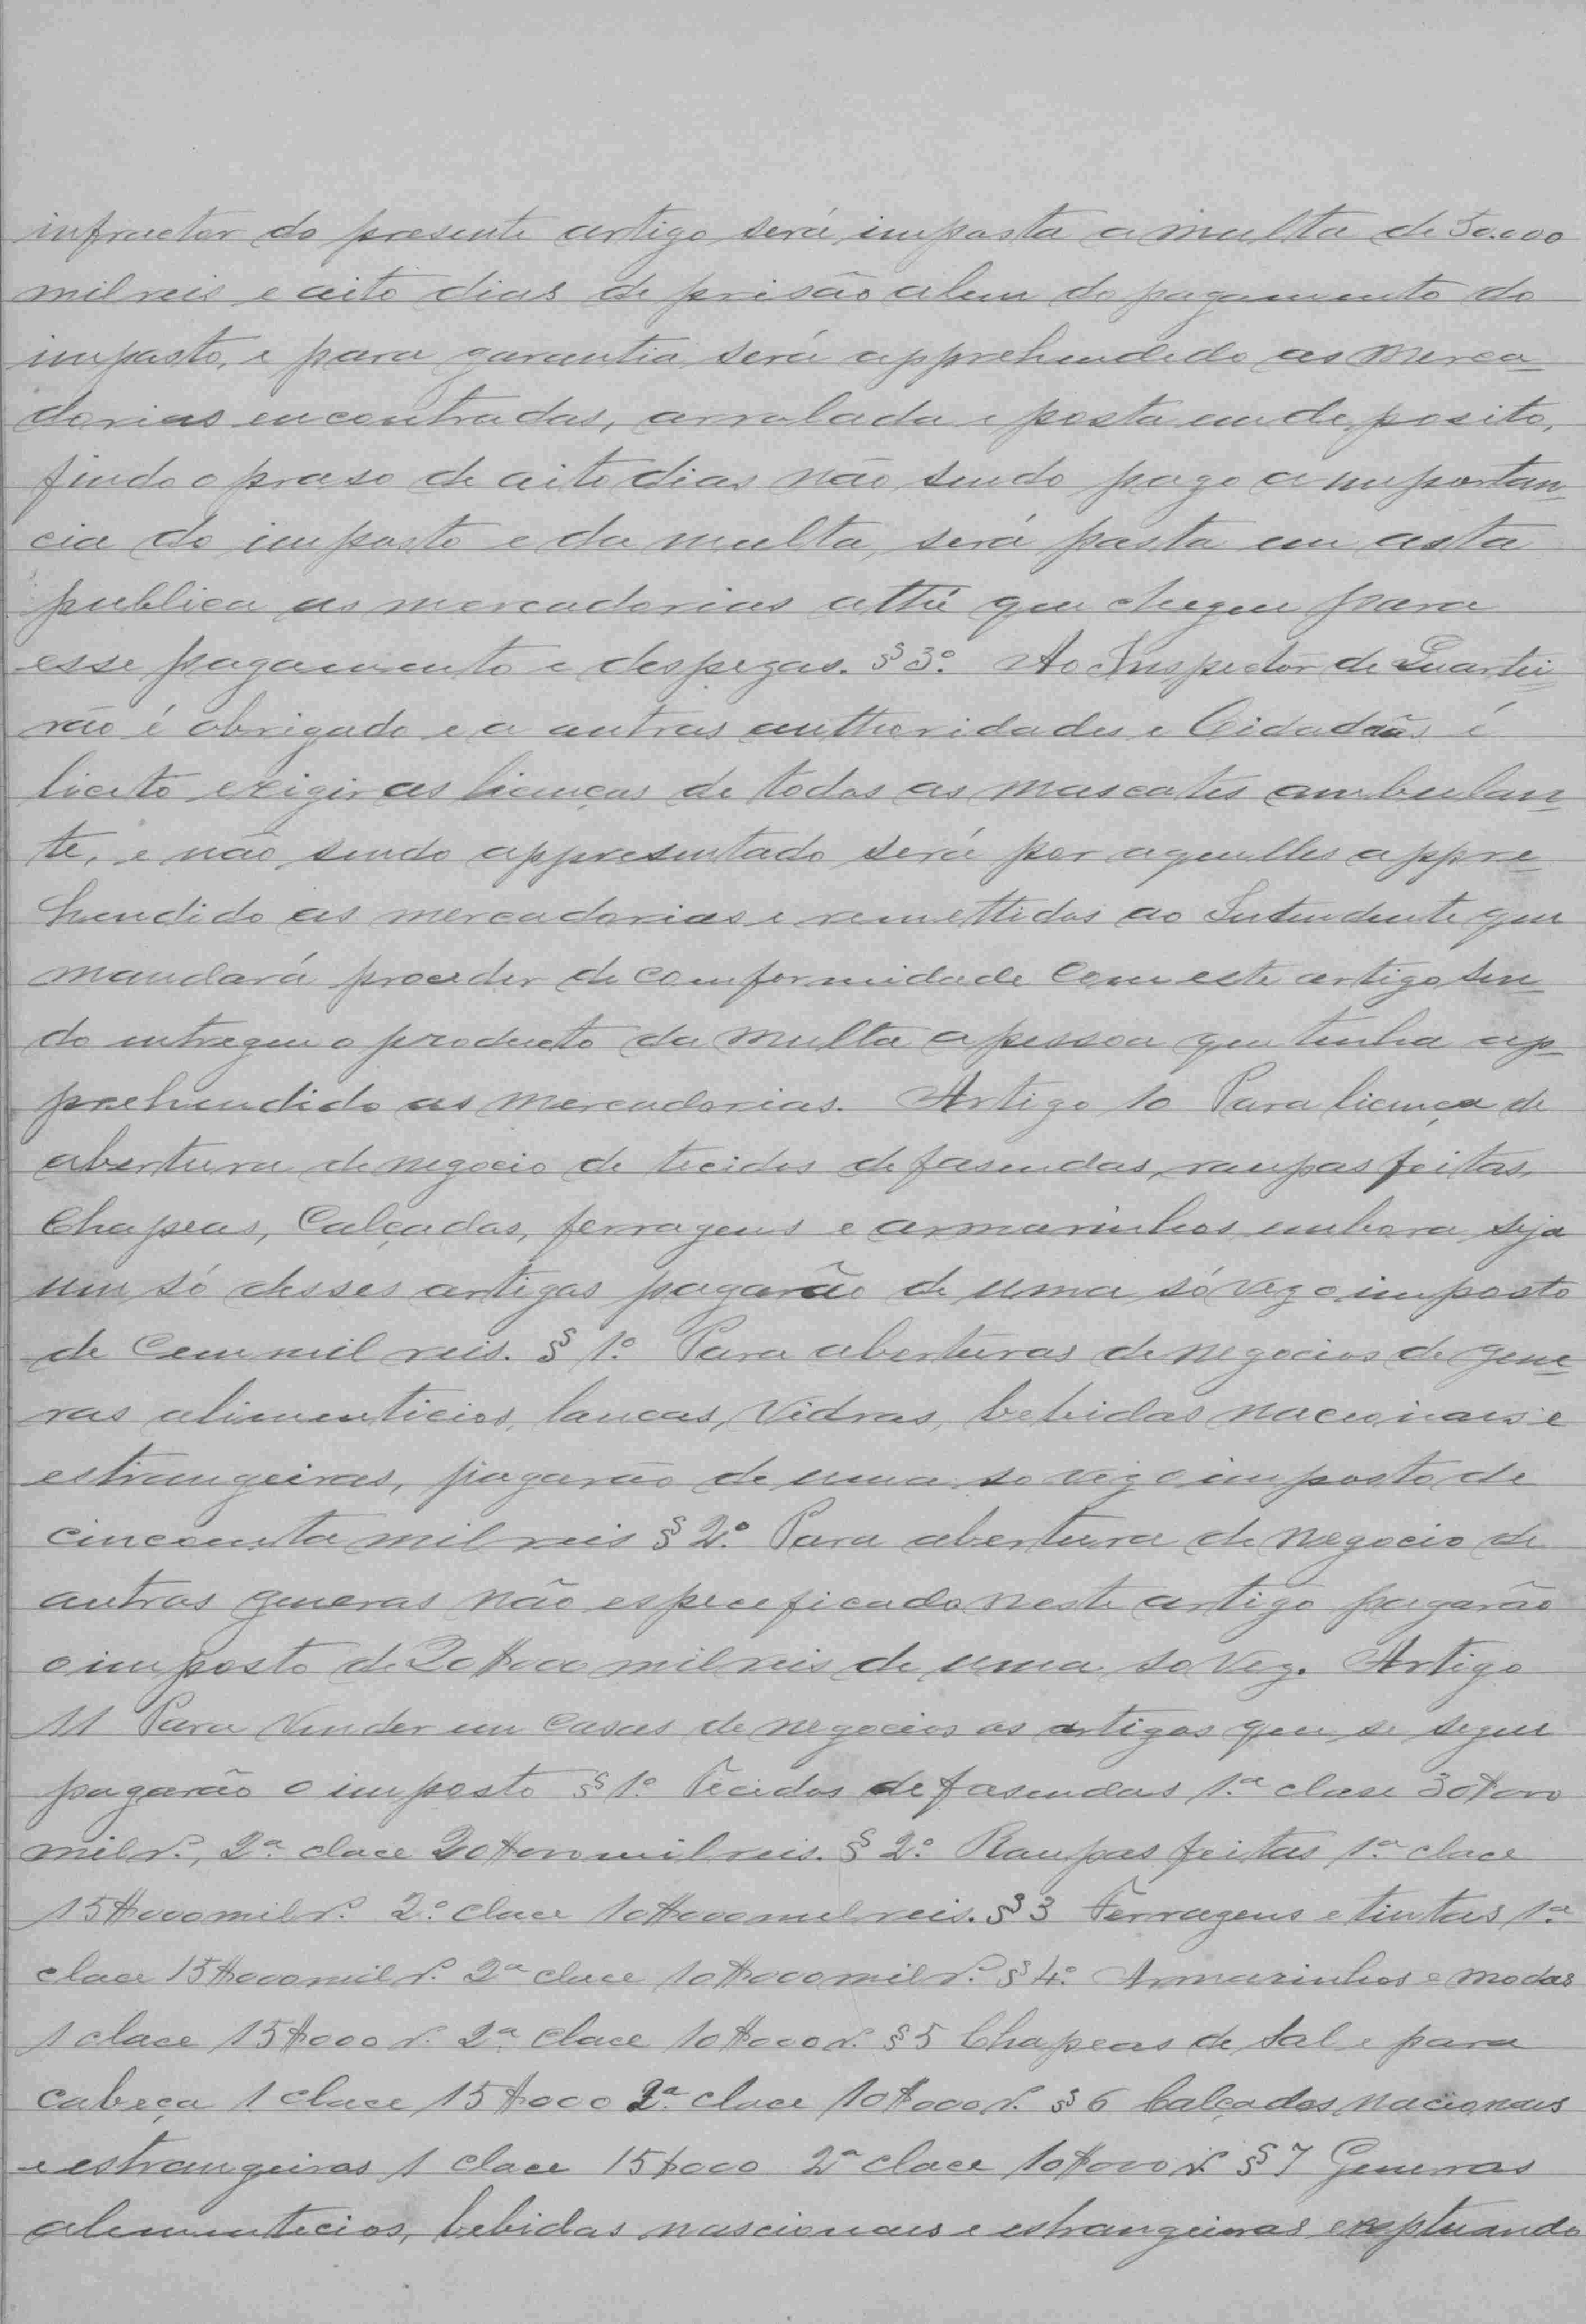 infractor do presente artigo será imposta a multa de 50.000
mil reis e oito dias de prisão alem do pagamento do
imposto, e para garantia será apprehendido as merca-
dorias encontradas, arrolada e posta em deposito,
findo o praso de oito dias não sendo pago a importan-
cia do imposto e da multa, será posta em asta
publica as mercadorias athé que chegue para
esse pagamento e despezas. § 3º. Ao Inspector de Quartei-
rão é obrigado e a outras authoridades e Cidadãos é
licito exigir as licenças de todos os mascates ambulan-
te, e não sendo appresentado será por aquelles appre-
hendido as mercadorias e remettidos ao Intendente que
mandará proceder de comformidade com este artigo sen-
do entregue o producto da multa a pessoa que tenha ap-
prehendido as mercadorias. Artigo 10 Para licença de
abertura de negocio de tecidos de fasendas, roupas feitas,
Chapeos, Calçados, ferragens e armarinhos embora seja
um só desses artigos pagarão de uma só vez o imposto
de Cem mil reis. § 1º. Para aberturas de negocios de gene-
ros alimenticios, loucas, Vidros, bebidas nacionais e
estrangeiras, pagarão de uma so vez o imposto de
cincoenta mil reis § 2º. Para abertura de negocio de
outros generos não especeficado neste artigo pagarão
o imposto de 20$000 mil reis de uma so vez. Artigo
11 Para Vender em Casas de negocios os artigos que se segue
pagarão o imposto § 1º. Tecidos de fasendas 1.ª clase 30$000
mil r.s, 2.ª clace 20$000 mil reis. § 2º. Roupas feitas 1.ª clace
15$000 mil r.s 2.º clace 10$000 mil reis. § 3 Ferragens e tintas 1.ª
clace 15$000 mil r.s 2ª clace 10$000 mil r.s § 4º. Armarinhos e modas
1 clace 15$000 r.s 2.ª clace 10$000 r.s § 5 Chapeos de Sol e para
cabeça 1 clace 15$000 2.ª clace 10$000 r.s § 6 Calçados nacionais
e estrangeiros 1 clace 15$000 2ª clace 10$000 r.s § 7 Generos
alementecios, bebidas nascionais e estrangeiras exeptuando